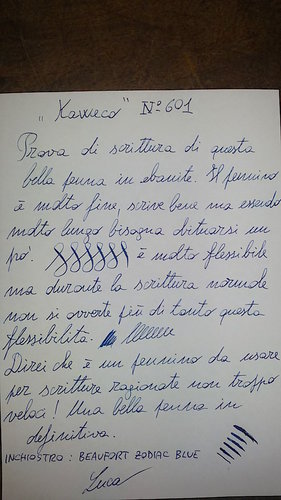 "Kaweco" N° 601
Prova di scrittura di questa
bella penna in ebanite. Il pennino
è molto fine, scrive bene ma essendo
molto lungo bisogna abituarsi un
po'. è molto flessibile
ma durante la scrittura normale
non si avverte più di tanto questa
flessibilità.
Direi che è un pennino da usare
per scritture ragionate non troppo
veloci! Una bella penna in
definitiva.
INCHIOSTRO: BEAUFORT ZODIAC BLUE
Luca